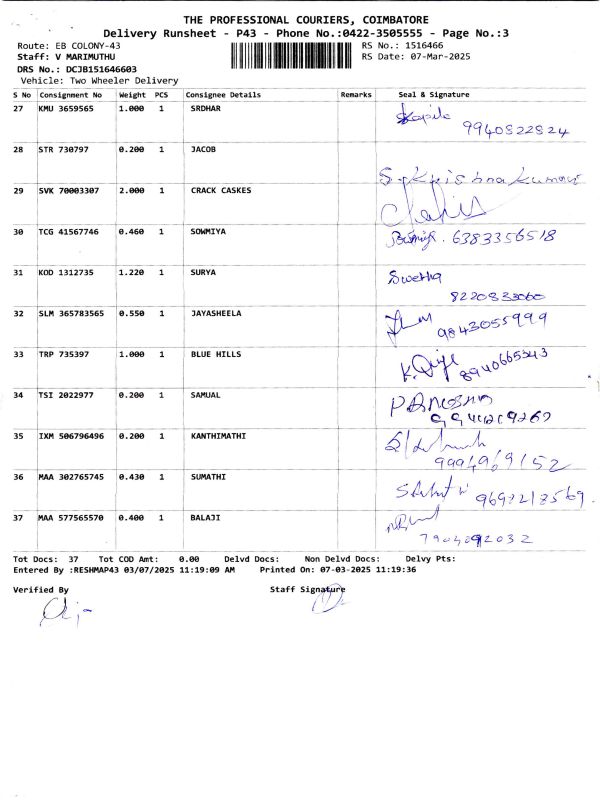 THE PROFESSIONAL COURIERS, COIMBATORE
Delivery Runsheet - P43 - Phone No.:0422-3505555 - Page No.:3
Route: EB COLONY-43 RS No.: 1516466
Staff: V MARIMUTHU RS Date: 07-Mar-2025
DRS No.: DCJB151646603
Vehicle: Two Wheeler Delivery
S No Consignment No Weight PCS Consignee Details Remarks Seal & Signature
27 KMU 3659565 1.000 1 SRDHAR
9940822824
28 STR 730797 0.200 1 JACOB
29 SVK 70003307 2.000 1 CRACK CASKES
30 TCG 41567746 0.460 1 SOWMIYA 6383356518
31 KOD 1312735 1.220 1 SURYA Swetha
8220833060
32 SLM 365783565 0.550 1 JAYASHEELA 9843055999
33 TRP 735397 1.000 1 BLUE HILLS
34 TSI 2022977 0.200 1 SAMUAL
35 IXM 506796496 0.200 1 KANTHIMATHI
9994969152
36 MAA 302765745 0.430 1 SUMATHI
37 MAA 577565570 0.400 1 BALAJI
Tot Docs: 37 Tot COD Amt: 0.00 Delvd Docs: Non Delvd Docs: Delvy Pts:
Entered By :RESHMAP43 03/07/2025 11:19:09 AM Printed On: 07-03-2025 11:19:36
Verified By Staff Signature